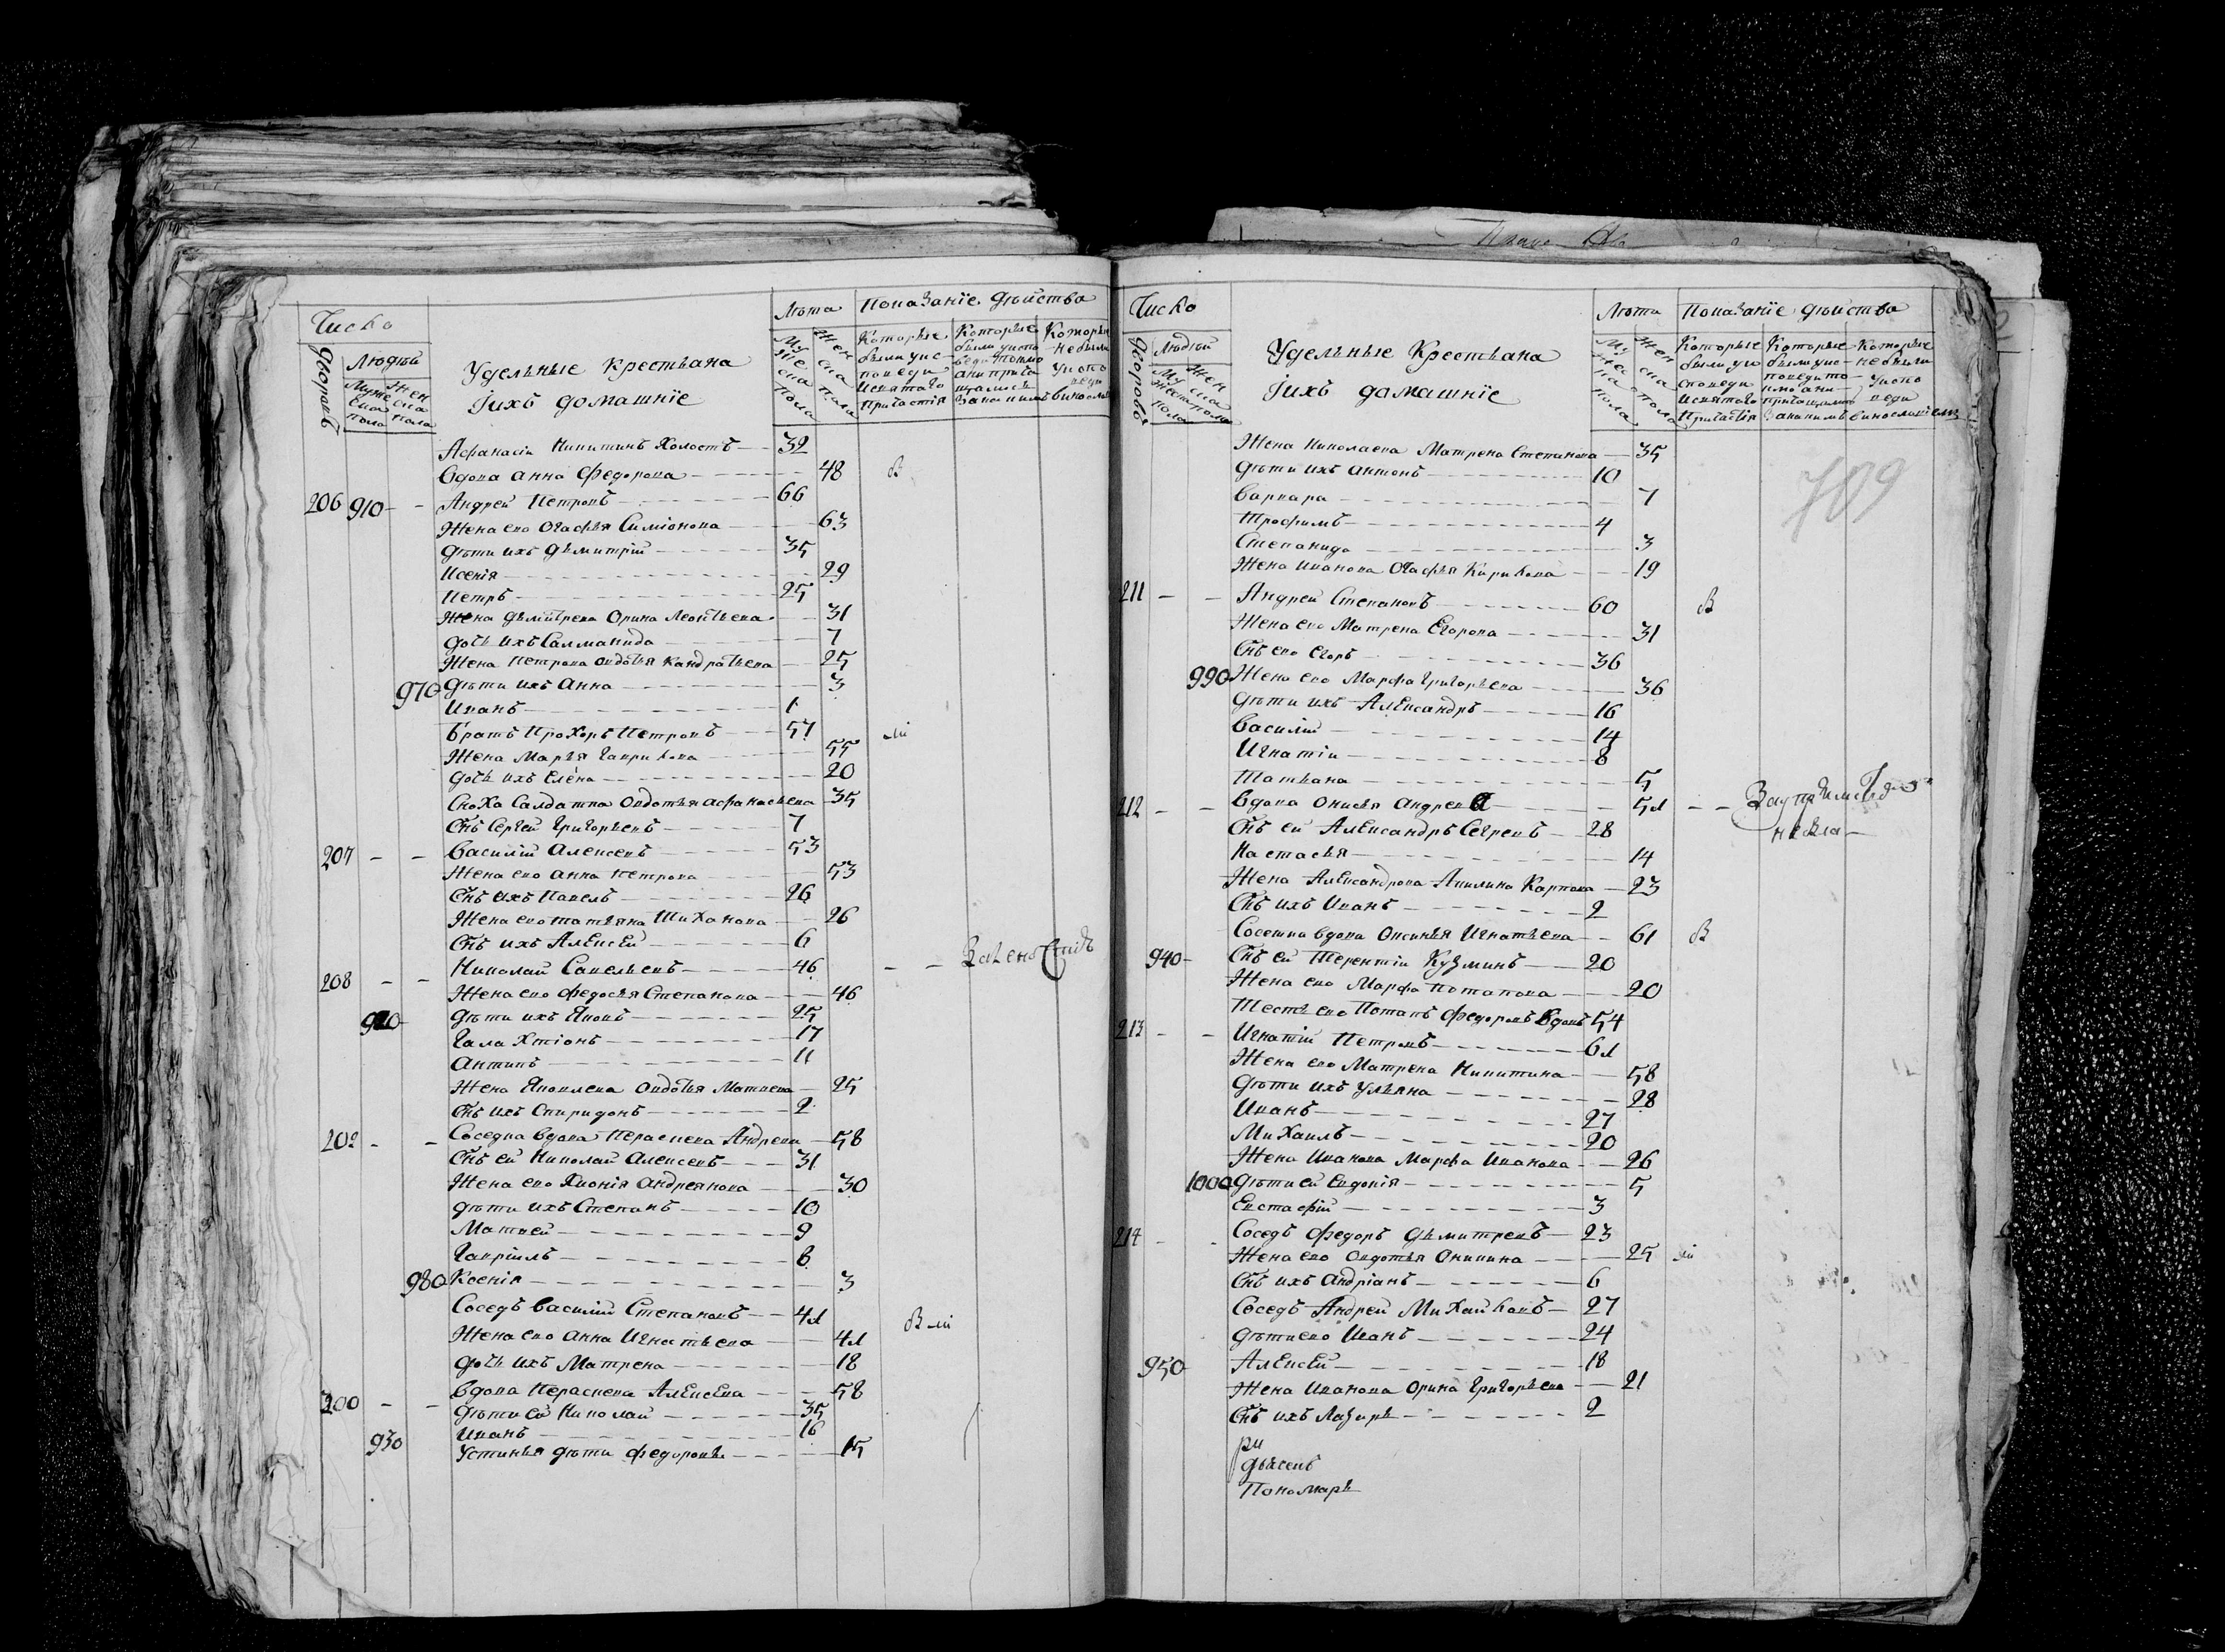 Число
Людей
дворовъ
Мужеска пола
Женска пола
Удельные крестьяна
Іихъ домашніе
Лѣта
Мужеска пола
Женска пола
Показаніе действа
Которые были у исповеди и святаго причастія
Которые были у исповеди токмо а не причащались и за каким
Которые не были у исповеди
Афанасіи Никитинъ холостъ 32
вдова анна федорова 48 в
206 910 Андрей Петровъ 66
Жена ево Огафья Симіонова 63
дѣти ихъ дѣмитрій 35
Ксенія 29
Петръ 25
Жена дѣмитрева Орина Леонтьева 31
дочь ихъ Салманида 7
Жена Петрова овдотья Кандратьева 25
970 дѣти ихъ Анна 3
Иванъ 1
братъ Прохоръ Петровъ 57
Жена Марья Гаврилова 55
дочь ихъ Елена 20
Сноха Салдатка овдотья афанасьева 35
Снъ Сергей Григорьевъ 7
207 Василій Алексеевъ 53
Жена ево Анна Петрова 53
Снъ ихъ Павелъ 26
Жена ево татьяна Тиханова 26
Снъ ихъ Алексей 6
208 Николай Савельевъ 46
Жена ево федосья Степанова 46
920 дѣти ихъ Яковъ 25
Галахтіонъ 17
Антипъ 11
Жена Яковлева овдотья Матвеева 25
Снъ ихъ Спиридонъ 2
Соседка вдова Пераскева Андреева 58
Снъ ей Николай Алексевъ 31
Жена ево Хионія андреянова 30
дѣти ихъ Степанъ 10
Матвей 9
Гавріилъ 8
980 Ксенія 3
Соседъ Василій Степановъ 41
Жена ево анна Игнатьева 41
дочь ихъ Матрена 18
вдова Пераскева Алексеева 58
дѣти ей Николай 35
Иванъ 16
930 Устинья дѣти федоровы 15
Число
Людей
дворовъ
Мужеска пола
Женска пола
Удельные Крестьяна
Іихъ домашніе
Лѣта
Мужеска пола
Женска пола
Показаніе действа
Которые были у исповеди и святаго причастія
Которые были у исповеди
Которые не были у исповеди
709
Жена Николаева Матрена Степанова 35
дѣти ихъ антонъ 10
варвара 7
Трофимъ 4
Степанида 3
Жена иванова Огафья Кирилова 19
211 Андрей Степановъ 60 в
Жена ево Матрена Егорова 31
Снъ ево Егоръ 36
990 Жена ево Марфа Григорьева 36
дѣти ихъ Александръ 16
Василій 14
Игнатіи 8
Татьяна 5
212 вдова Онисья андреева 51
Снъ ей Александръ Сергеевъ 28
Настасья 14
Жена Александрова Акилина Карпова 23
Снъ ихъ Иванъ 2
Соседка вдова Оксинья Игнатьева 61 в
940 Снъ ей Терентіи Кузминъ 20
Жена ево Марфа Потапова 20
Тесть ево Потапъ федоровъ вдовъ 54
213 Игнатіи Петровъ 61
Жена ево Матрена Никитина 58
дѣти ихъ Ульяна 28
Иванъ 27
Михаилъ 20
Жена Иванова Марфа Иванова 26
1000 дѣти ей евдокія 5
Евстафій 3
214 Соседъ федоръ дѣмитревъ 23
Жена ево Овдотья Аникина 25
Снъ ихъ андріанъ 6
Соседъ Андрей Михайловъ 27
дѣти ево Иванъ 24
950 Алексей 18
Жена Иванова орина Григорьева 21
Снъ ихъ Лазарь 2
дьяконъ
Пономарь